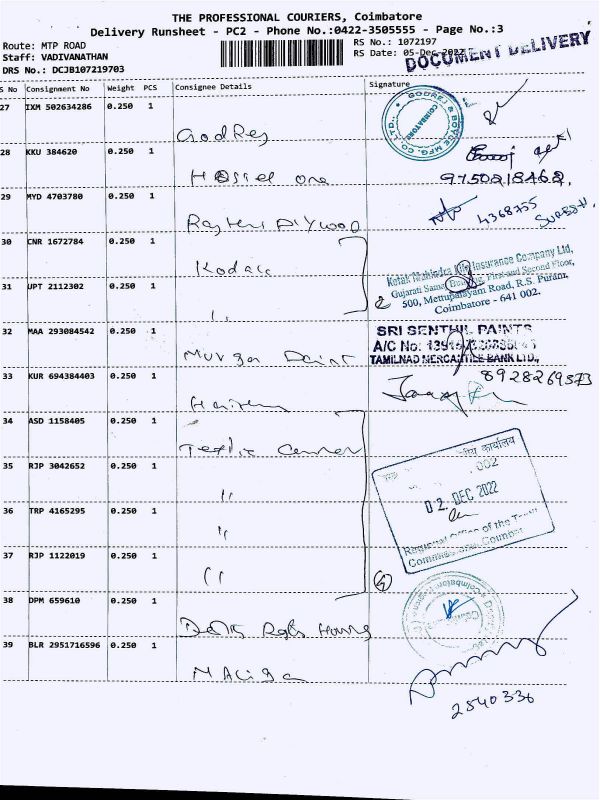 THE PROFESSIONAL COURIERS, Coimbatore
Delivery Runsheet - PC2 - Phone No.:0422-3505555 - Page No.:3
Route: MTP ROAD
Staff: VADIVANATHAN
DRS No.: DCJB107219703
RS No.: 1072197
RS Date: 05-Dec-2022
DOCUMENT DELIVERY
S No Consignment No Weight PCS Consignee Details Signature
27 IXM 502634286 0.250 1 Godrej
GODREJ & BOYCE MFG. CO. LTD.
COIMBATORE
28 KKU 384620 0.250 1 Hostel one
9750218462
29 MYD 4703780 0.250 1 Plywood
4368755 SURESH
30 CNR 1672784 0.250 1 Kodak
31 UPT 2112302 0.250 1 ,,
Kotak Mahindra Life Insurance Company Ltd,
Gujarati Samaj Building, First and Second Floor,
500, Mettupalayam Road, R.S. Puram,
Coimbatore - 641 002.
2
32 MAA 293084542 0.250 1 Murga Paint
SRI SENTHIL PAINTS
A/C No:
TAMILNAD MERCANTILE BANK LTD.,
33 KUR 694384403 0.250 1
8928269573
34 ASD 1158405 0.250 1
35 RJP 3042652 0.250 1 ,,
36 TRP 4165295 0.250 1 ,,
37 RJP 1122019 0.250 1 ,,
कार्यालय
002
02 DEC 2022
Regional Office of the
4
38 DPM 659610 0.250 1
39 BLR 2951716596 0.250 1
2540336